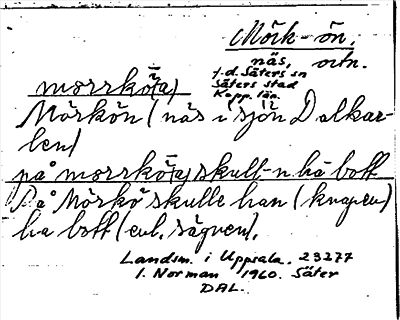 Mörk-ön.
näs, ortn.
f.d. Säters sn
Säters stad
Kopp. län.
Mörkön (näs i sjön Dalkar-
len)
på morrskö skull-n ha bott
På Mörkö skulle han (knapen)
ha bott (enl. sägnen).
Landsm. i Uppsala. 23277
I. Norman 1960. Säter
DAL.